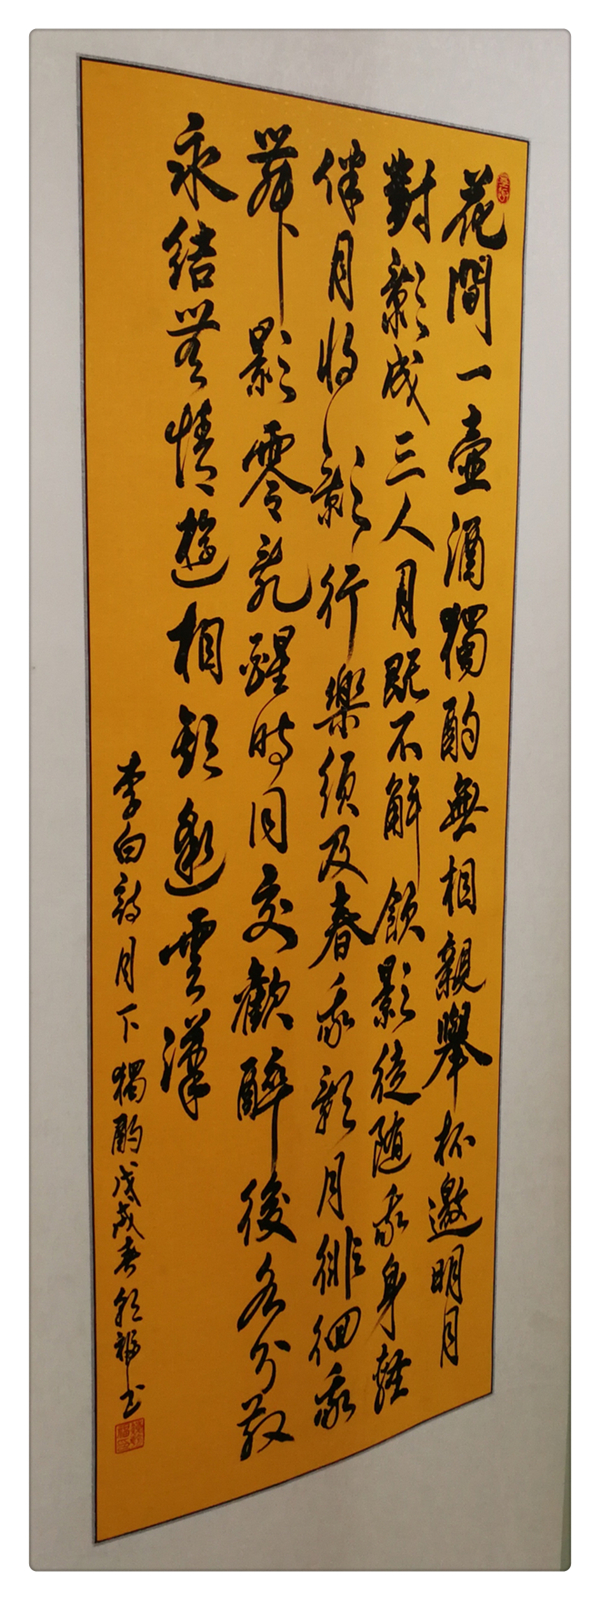 花間一壺酒獨酌無相親舉杯邀明月
對影成三人月既不解飲影徒隨我身暫
伴月將影行樂須及春我歌月徘徊我
舞影零亂醒時同交歡醉後各分散
永結無情遊相期邈雲漢
李白詩月下獨酌戊戌春福书